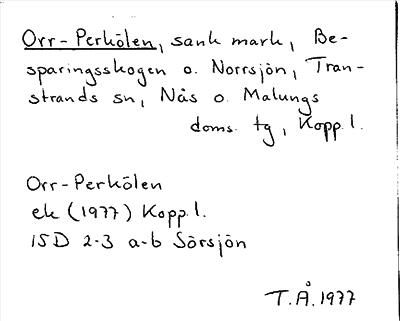 Orr-Perkölen, sank mark, Be-
sparingsskogen o. Norrsjön, Tran-
strands sn, Nås o. Malungs
doms. tg, Kopp. l.
Orr-Perkölen
ek (1977) Kopp. l.
15D 2-3 a-b Sörsjön
T.Å. 1977